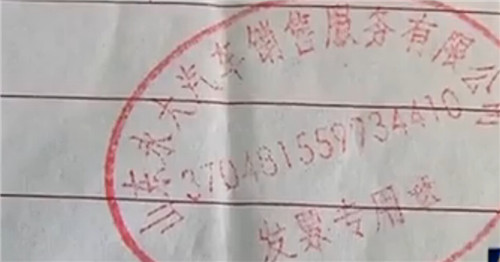 山东水木汽车销售服务有限公司
370481559734410
发票专用章